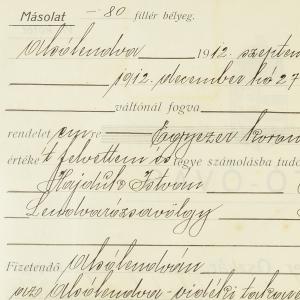 Másolat — 80 fillér bélyeg.
Alsólendva 1912. szeptem
1912. december hó 27
váltónál fogva
rendelet em re Egyezer koron
értéke t felvettem és tegye számolásba tudo
Hajduk István
Lendvarózsavölgy
Fizetendő Alsólendván
az Alsólendva-vidéki takar